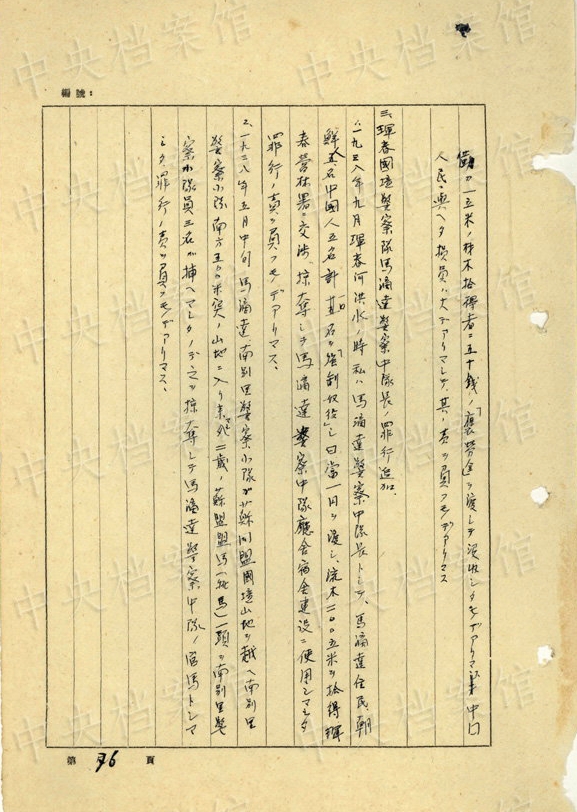 中央档案馆
編號：
価ガ一立米ノ材木拾得者ニ五十銭ノ「褒労金」ヲ渡シテ没収シタモノデアリマシテ中国
人民ニ與ヘタ損害ハ大デアリマシテ、其ノ責ヲ負フモノデアリマス
三、琿春國境警察隊馬滴達警察中隊長ノ罪行追加.
1. 一九三八年九月琿春河洪水ノ時私ハ馬滴達警察中隊長トシテ、馬滴達住民、朝
鮮人五名中国人五名計 名ヲ「強制奴役」シ日当一円ヲ渡シ、流木二〇〇立米ヲ拾得琿
春営林署ニ交渉、掠奪シテ馬滴達警察中隊廳舎宿舎建設ニ使用シマシタ
罪行ノ責ヲ負フモノデアリマス、
2. 一九三八年五月中旬馬滴達南別里警察小隊ガ蘇 盟國境山地ヲ越ヘ南別里
警察小隊南方五〇〇米突ノ山地ニ入リ来 二歳ノ蘇盟 馬（牝馬）一頭ヲ南別里警
察小隊員三名ガ捕ヘマシタノデ之ヲ掠奪シテ馬滴達警察中隊ノ官馬トシマ
シタ罪行ノ責ヲ負フモノデアリマス、
第 76 頁